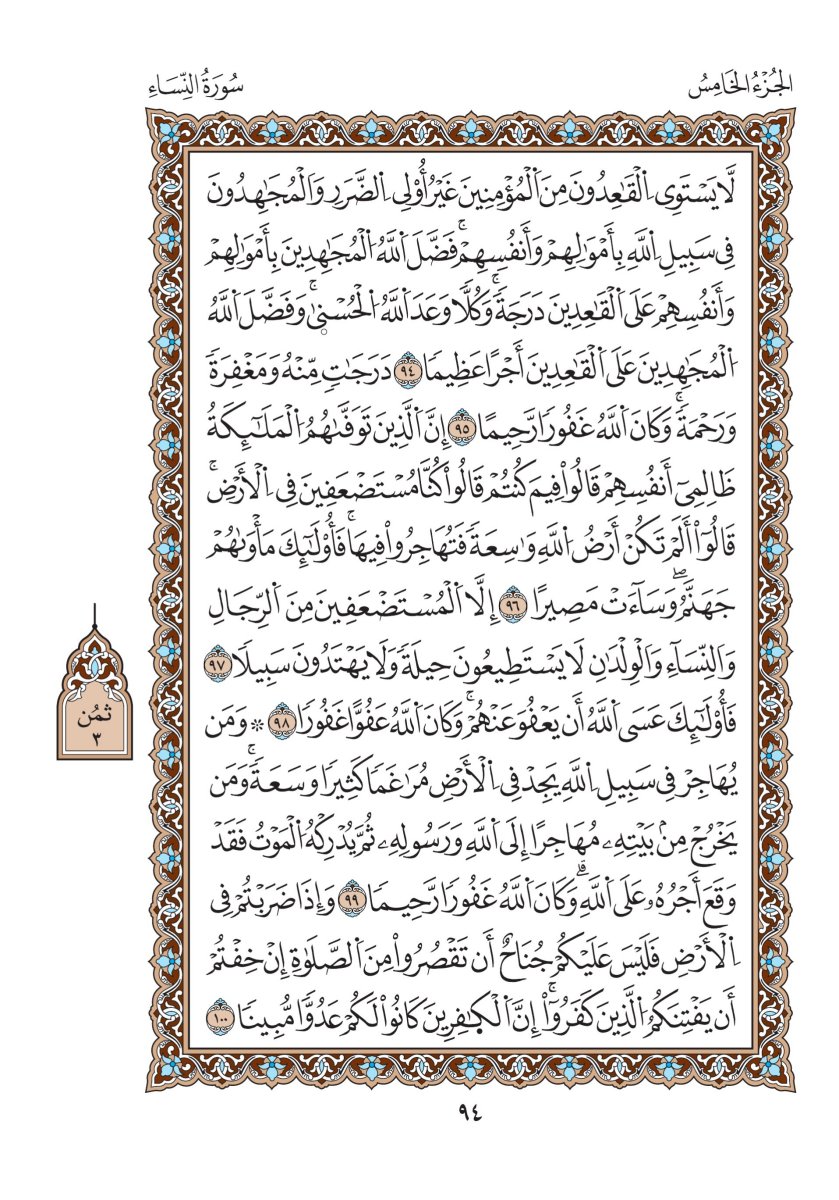 الجُزْءُ الخَامِسُ
سُورَةُ النِّسَاءِ
لَّا يَسْتَوِى اِ۬لْقَٰعِدُونَ مِنَ اَ۬لْمُؤْمِنِينَ غَيْرُ أُوْلِى اِ۬لضَّرَرِ وَالْمُجَٰهِدُونَ
فِى سَبِيلِ اِ۬للَّهِ بِأَمْوَٰلِهِمْ وَأَنفُسِهِمْۚ فَضَّلَ اَ۬للَّهُ اُ۬لْمُجَٰهِدِينَ بِأَمْوَٰلِهِمْ
وَأَنفُسِهِمْ عَلَى اَ۬لْقَٰعِدِينَ دَرَجَةٗۚ وَكُلّٗا وَعَدَ اَ۬للَّهُ اُ۬لْحُسْنىٰۚ وَفَضَّلَ اَ۬للَّهُ
اُ۬لْمُجَٰهِدِينَ عَلَى اَ۬لْقَٰعِدِينَ أَجْرًا عَظِيمٗا ٩٤ دَرَجَٰتٖ مِّنْهُ وَمَغْفِرَةٗ
وَرَحْمَةٗۚ وَكَانَ اَ۬للَّهُ غَفُورٗا رَّحِيمًا ٩٥ إِنَّ اَ۬لَّذِينَ تَوَفَّىٰهُمُ اُ۬لْمَلَٰٓئِكَةُ
ظَالِمِىٓ أَنفُسِهِمْ قَالُواْ فِيمَ كُنتُمْ قَالُواْ كُنَّا مُسْتَضْعَفِينَ فِى اِ۬لْأَرْضِۚ
قَالُوٓاْ أَلَمْ تَكُنْ أَرْضُ اُ۬للَّهِ وَٰسِعَةٗ فَتُهَاجِرُواْ فِيهَاۚ فَأُوْلَٰٓئِكَ مَأْوَىٰهُمْ
جَهَنَّمُۖ وَسَآءَتْ مَصِيرًا ٩٦ إِلَّا اَ۬لْمُسْتَضْعَفِينَ مِنَ اَ۬لرِّجَالِ
وَالنِّسَآءِ وَالْوِلْدَٰنِ لَا يَسْتَطِيعُونَ حِيلَةٗ وَلَا يَهْتَدُونَ سَبِيلٗا ٩٧
فَأُوْلَٰٓئِكَ عَسَى اَ۬للَّهُ أَن يَعْفُوَ عَنْهُمْۚ وَكَانَ اَ۬للَّهُ عَفُوًّا غَفُورٗا ٩٨ ۞ وَمَن
يُهَاجِرْ فِى سَبِيلِ اِ۬للَّهِ يَجِدْ فِى اِ۬لْأَرْضِ مُرَٰغَمٗا كَثِيرٗا وَسَعَةٗۚ وَمَن
يَخْرُجْ مِنۢ بَيْتِهِۦ مُهَاجِرًا إِلَى اَ۬للَّهِ وَرَسُولِهِۦ ثُمَّ يُدْرِكْهُ اُ۬لْمَوْتُ فَقَدْ
وَقَعَ أَجْرُهُۥ عَلَى اَ۬للَّهِۗ وَكَانَ اَ۬للَّهُ غَفُورٗا رَّحِيمٗا ٩٩ وَإِذَا ضَرَبْتُمْ فِى
اِ۬لْأَرْضِ فَلَيْسَ عَلَيْكُمْ جُنَاحٌ أَن تَقْصُرُواْ مِنَ اَ۬لصَّلَوٰةِ إِنْ خِفْتُمْ
أَن يَفْتِنَكُمُ اُ۬لَّذِينَ كَفَرُوٓاْۚ إِنَّ اَ۬لْكَٰفِرِينَ كَانُواْ لَكُمْ عَدُوّٗا مُّبِينٗا ١٠٠
ثُمُن
٣
٩٤